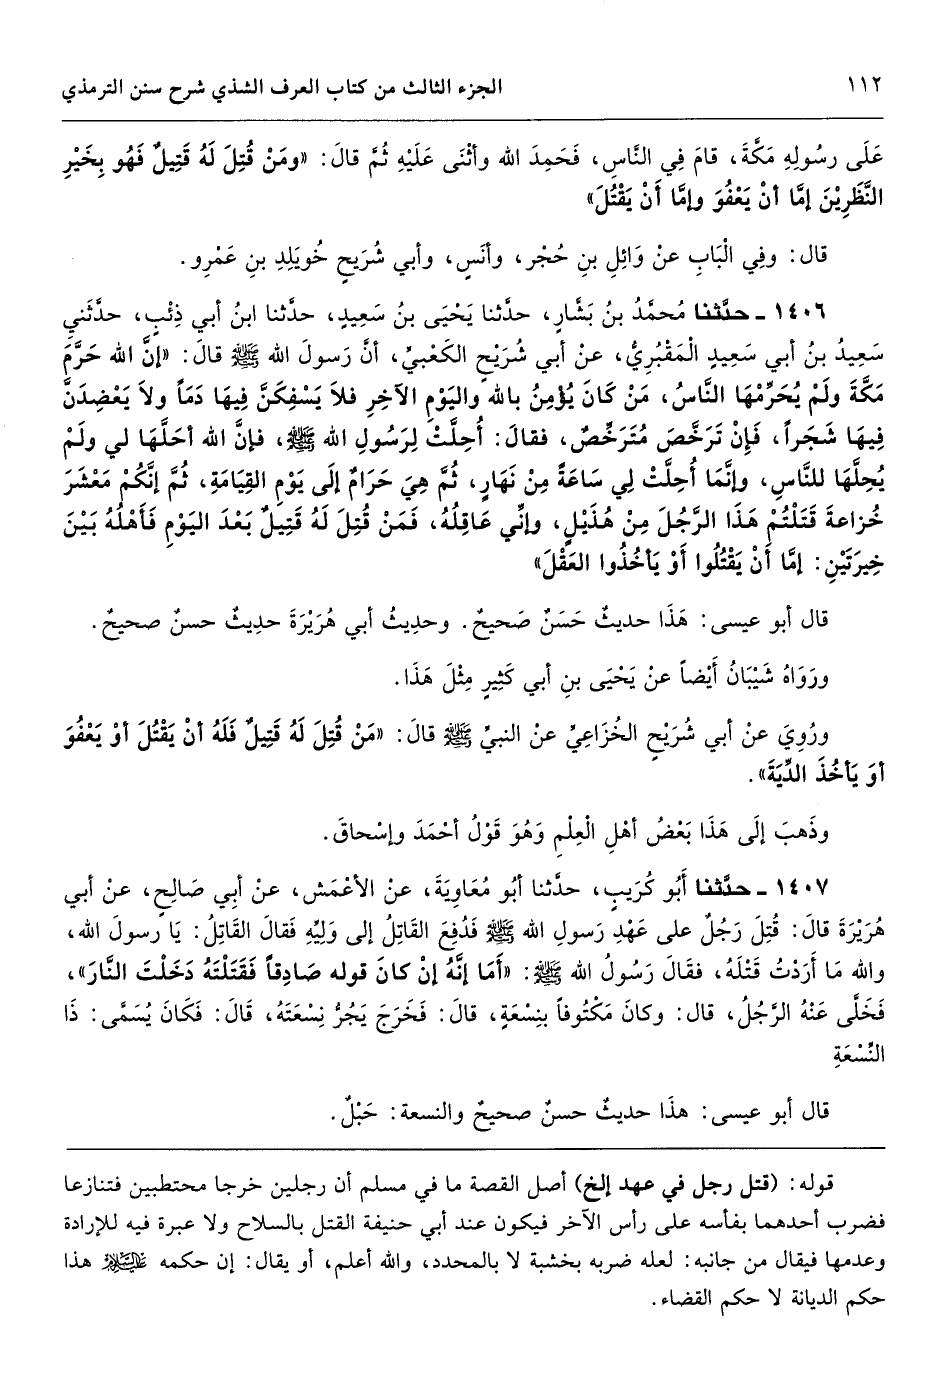 ١١٢
الجزء الثالث من كتاب العرف الشذي شرح سنن الترمذي
عَلَى رسُولِهِ مَكَّةَ، قامَ فِي النَّاسِ، فَحَمِدَ الله وأثْنَى عَلَيْهِ ثُمَّ قالَ: «ومَنْ قُتِلَ لَهُ قَتِيلٌ فَهُو بِخَيْرِ
النَّظَرِيْنَ إمَّا أنْ يَعْفُوَ وإمَّا أَنْ يَقْتُلَ»
قال: وفِي الْبَابِ عنْ وَائِلِ بنِ حُجْر، وأنَسٍ، وأبي شُرَيحٍ خُويَلِدِ بنِ عَمْرِو.
١٤٠٦ ـ حدَّثنا مُحمَّدُ بنُ بَشَّارٍ، حدَّثنا يَحْيَى بنُ سَعِيدٍ، حدَّثنا ابنُ أبي ذِئْبٍ، حدَّثَني
سَعِيدُ بنُ أبي سَعِيدٍ الْمَقْبُرِيُّ، عنْ أبي شُرَيْحٍ الكَعْبيِّ، أنَّ رَسولَ الله ﷺ قالَ: «إنَّ الله حَرَّمَ
مَكَّةَ ولَمْ يُحَرِّمْهَا النَّاسُ، مَنْ كَانَ يُؤْمِنُ بالله واليَوْمِ الآخِرِ فلاَ يَسْفِكَنَّ فِيهَا دَمَاً ولاَ يَعْضِدَنَّ
فِيهَا شَجَراً، فَإِنْ تَرَخَّصَ مُتَرَخِّصٌ، فقالَ: أُحِلَّتْ لِرَسُولِ الله ﷺ، فإنَّ الله أحَلَّهَا لي ولَمْ
يُحِلَّهَا للنَّاسِ، وإنَّمَا أُحِلَّتْ لِي سَاعَةً مِنْ نَهَارٍ، ثُمَّ هِيَ حَرَامٌ إلَى يَوْمِ القِيَامَةِ، ثُم إنَّكُمْ مَعْشَرَ
خُزاعةَ قَتَلْتُمْ هَذَا الرَّجُلَ مِنْ هُذَيْلٍ، وإنِّي عَاقِلُهُ، فَمَنْ قُتِلَ لَهُ قَتِيلٌ بَعْدَ اليَوْمِ فَأَهْلُهُ بَيْنَ
خِيرَتَيْنِ: إمَّا أَنْ يَقْتُلُوا أَوْ يَأخُذُوا العَقْلَ»
قال أبو عيسى: هَذَا حديثٌ حَسَنٌ صَحيحٌ. وحدِيثُ أبي هُرَيْرَةَ حدِيثٌ حسنٌ صحيحٌ.
ورَوَاهُ شَيْبَانُ أيْضاً عنْ يَحْيَى بنِ أبي كَثِيرٍ مِثْلَ هَذَا.
ورُوِيَ عنْ أبي شُرَيْحٍ الخُزَاعِيِّ عنْ النبيِّ ﷺ قالَ: «مَنْ قُتِلَ لَهُ قَتِيلٌ فَلَهُ أنْ يَقْتُلَ أوْ يَعْفُوَ
أوَ يَأخُذَ الدِّيَةَ».
وذَهبَ إلَى هَذَا بَعْضُ أهْلِ الْعِلْمِ وَهُوَ قَوْلُ أحْمَدَ وإسْحاقَ.
١٤٠٧ ـ حدَّثنا أَبُو كُرَيبٍ، حدَّثنا أبُو مُعَاوِيَةَ، عنْ الأعْمَش، عنْ أبِي صَالِحٍ، عنْ أبي
هُرَيْرَةَ قالَ: قُتِلَ رَجُلٌ على عَهْدِ رَسولِ الله ﷺ فَدُفِعَ القَاتِلُ إلى وَلِيِّهِ فَقالَ القَاتِلُ: يَا رسولَ الله،
والله مَا أَرَدْتُ قَتْلَهُ، فقَالَ رَسُولُ الله ﷺ: «أَمَا إنَّهُ إنْ كانَ قوله صَادِقاً فَقَتَلْتَهُ دَخَلْتَ النَّارَ»،
فَخَلَّى عَنْهُ الرَّجُلُ، قال: وكانَ مَكْتُوفاً بِنِسْعَةٍ، قالَ: فَخَرَجَ يَجُرُّ نِسْعَتَهُ، قَالَ: فَكَانَ يُسَمَّى: ذَا
النِّسْعَةِ
قال أبو عيسى: هذَا حديثٌ حسنٌ صحيحٌ والنسعة: حَبْلٌ.
قوله: (قتل رجل في عهد إلخ) أصل القصة ما في مسلم أن رجلين خرجا محتطبين فتنازعا
فضرب أحدهما بفأسه على رأس الآخر فيكون عند أبي حنيفة القتل بالسلاح ولا عبرة فيه للإرادة
وعدمها فيقال من جانبه: لعله ضربه بخشبة لا بالمحدد، والله أعلم، أو يقال: إن حكمه عليه السلام هذا
حكم الديانة لا حكم القضاء.